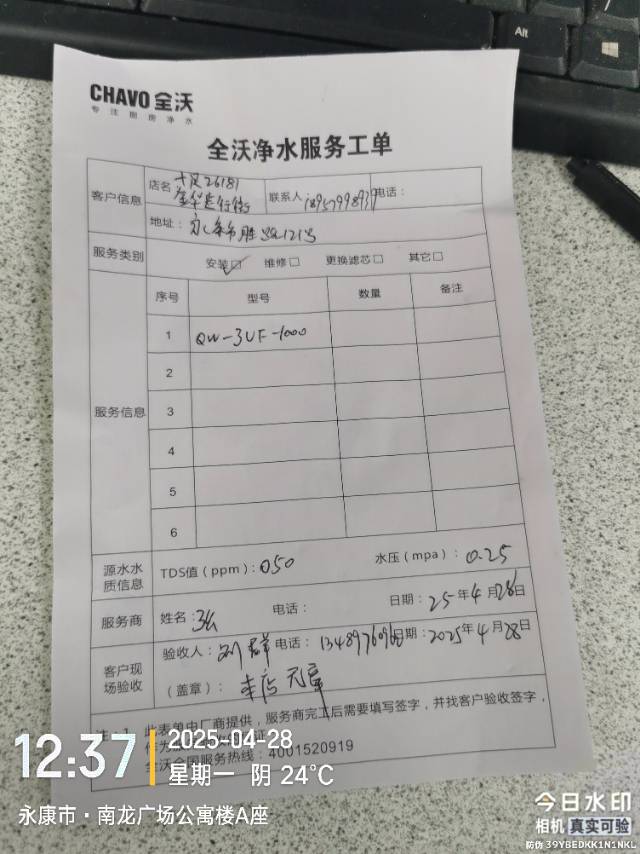 Alt
CHAVO 全沃
专注厨房净水
全沃净水服务工单
客户信息 店名 联系人 18957998939 电话：
地址：
服务类别 安装☑ 维修□ 更换滤芯□ 其它□
服务信息 序号 型号 数量 备注
1 QW-3UF-1000
2
3
4
5
6
源水水质信息 TDS值（ppm）：050 水压（mpa）：0.25
服务商 姓名： 电话： 日期：25年4月28日
客户现场验收 验收人：刘群 电话： 日期：2025年4月28日
（盖章）：本店无章
注：1、此表单由厂商提供，服务商完工后需要填写签字，并找客户验收签字，
全沃全国服务热线：4001520919
12:37 2025-04-28
星期一 阴 24℃
永康市·南龙广场公寓楼A座
今日水印
相机 真实可验
防伪 39YBEDKK1N1NKL